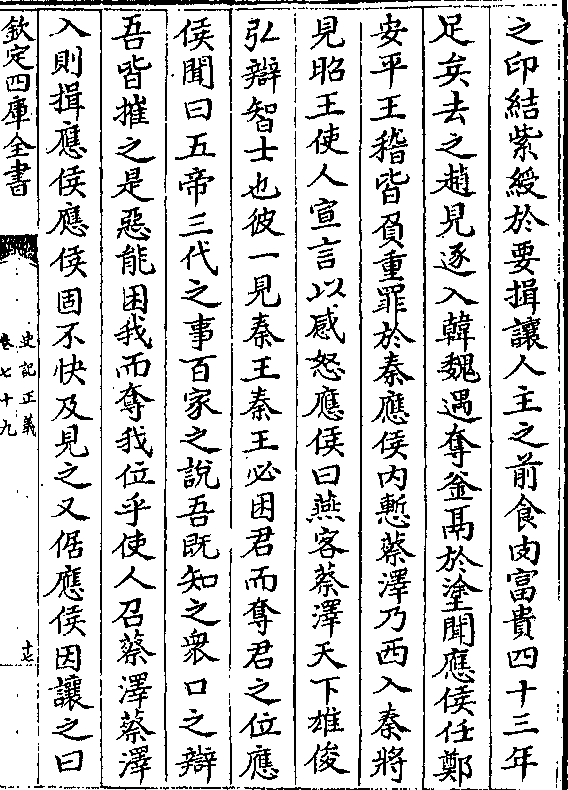 之印結紫綬於要揖讓人主之前食肉富貴四十三年
足矣去之趙見逐入韓魏遇奪釡鬲於塗聞應侯任鄭
安平王稽皆負重罪於秦應侯内慙蔡澤乃西入秦將
見昭王使人宣言以感怒應侯曰燕客蔡澤天下雄俊
弘辯智士也彼一見秦王秦王必困君而奪君之位應
侯聞曰五帝三代之事百家之說吾既知之衆口之辯
吾皆摧之是惡能困我而奪我位乎使人召蔡澤蔡澤
入則揖應侯應侯固不快及見之又倨應侯因讓之曰
欽定四庫全書
史記正義
卷七十九
十七